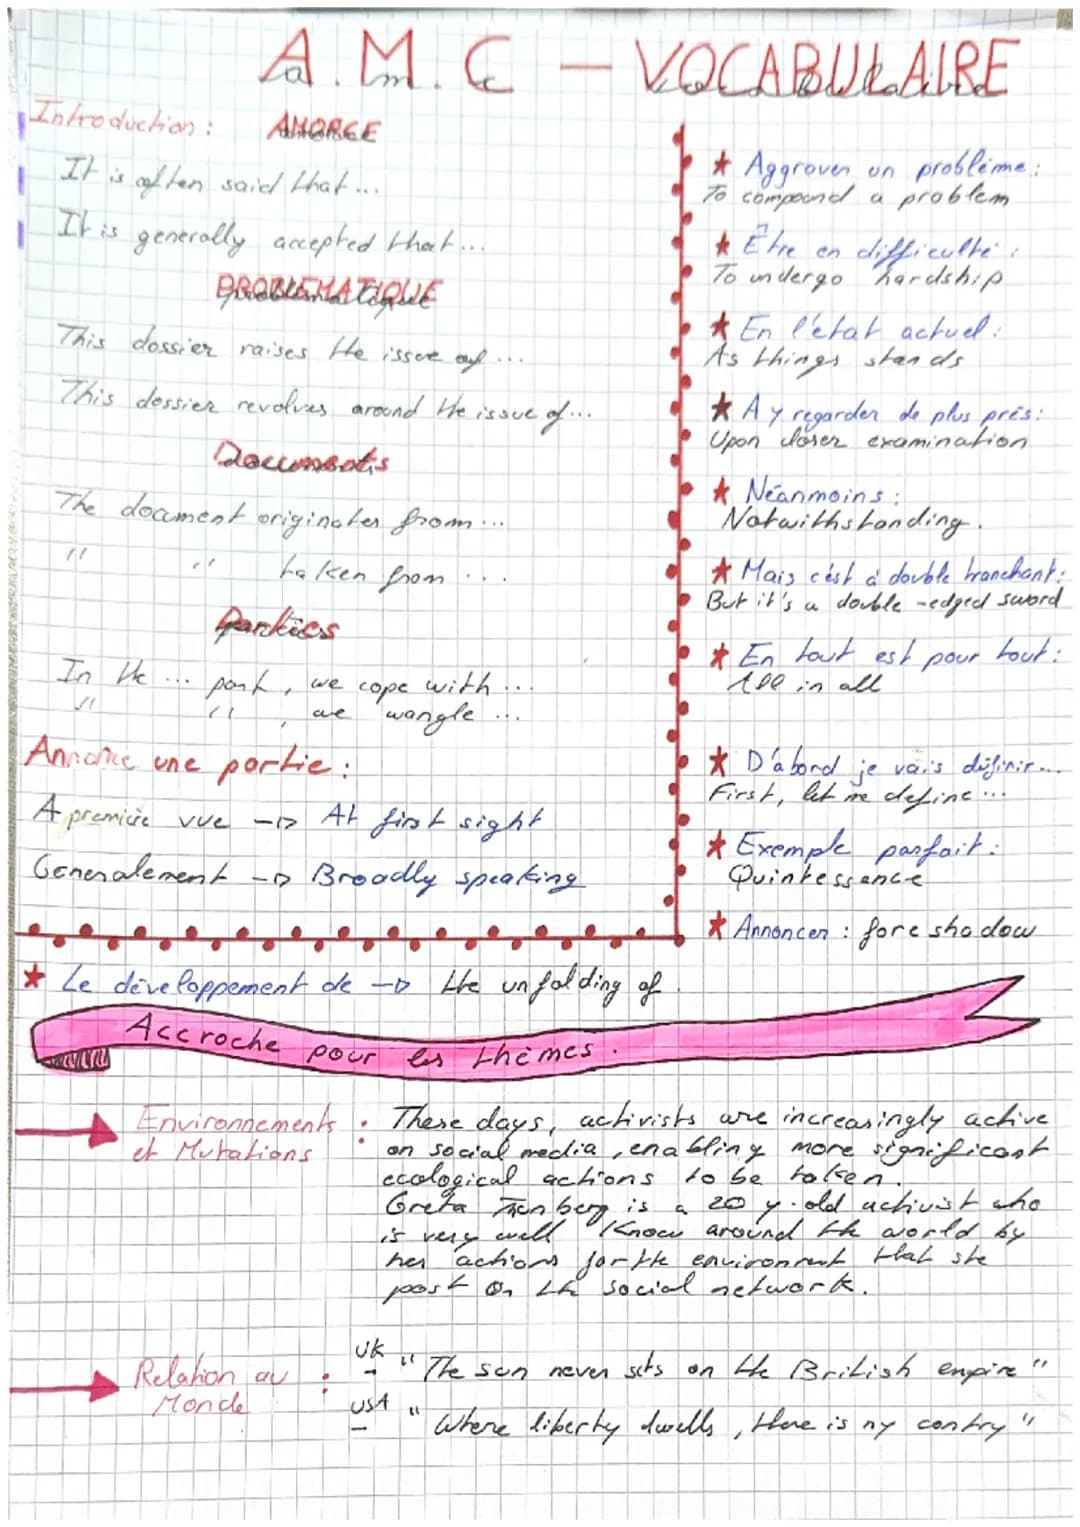 A.M.C - VOCABULAIRE
Introduction :
AMORCE
It is often said that...
It is generally accepted that...
PROBLEMATIQUE
This dossier raises the issue of ...
This dossier revolves around the issue of...
Documents
The document originates from...
" " taken from ...
Parties
In the ... part, we cope with ...
" " , we wangle ...
Annonce une partie :
A première vue → At first sight
Generalement → Broadly speaking
★ Aggraver un problème :
To compound a problem
★ Être en difficulté :
To undergo hardship
★ En l'état actuel :
As things stands
★ A y regarder de plus près :
Upon closer examination
★ Néanmoins :
Notwithstanding.
★ Mais c'est à double tranchant :
But it's a double-edged sword
★ En tout est pour tout :
All in all
★ D'abord je vais définir...
First, let me define...
★ Exemple parfait :
Quintessence
★ Annoncer : foreshadow
★ Le développement de → the unfolding of.
Accroche pour les thèmes.
Environnements
et Mutations
: These days, activists are increasingly active
on social media, enabling more significant
ecological actions to be taken.
Greta is a 20 y.old activist who
is very well Know around the world by
her actions for the environment that she
post on the social network.
Relation au
Monde
: UK - " The sun never sets on the British empire "
USA - " Where liberty dwells, there is my contry "